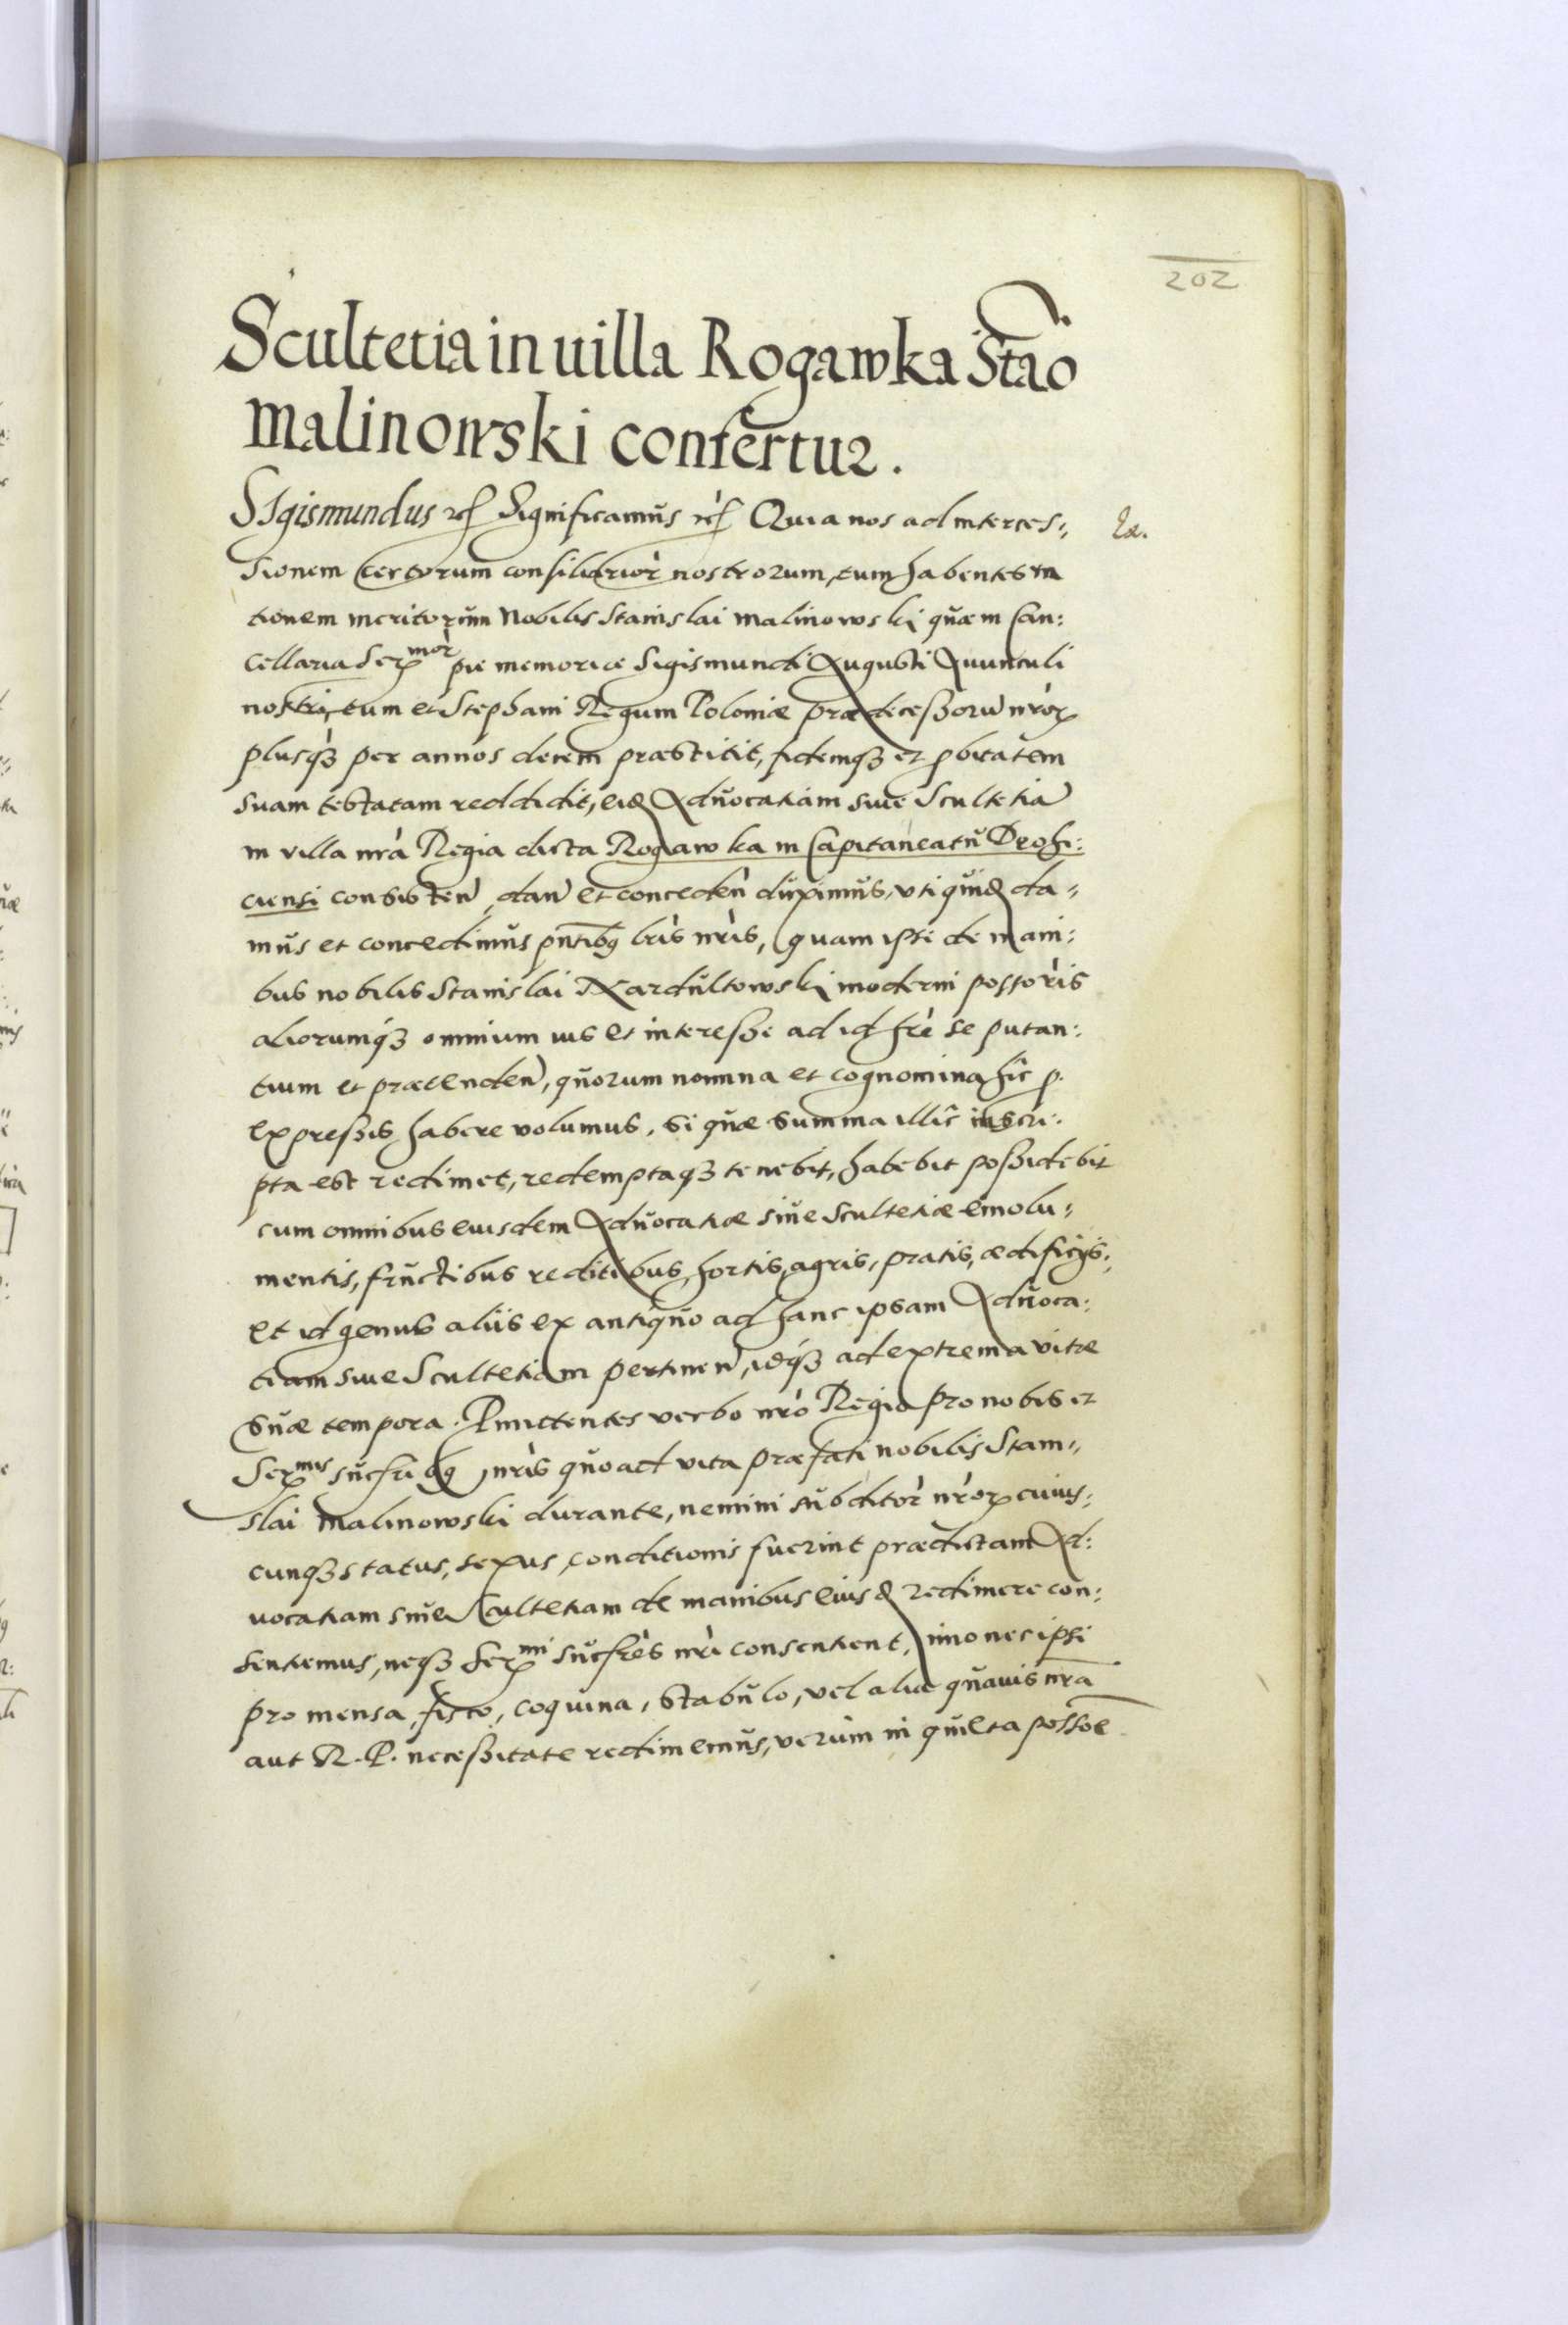 202
Scultetia in uilla Rogawka Stão
Malinowski confertur.
SIgismundus etc Significamus etc Quia nos ad interces=
sionem certorum consiliarior nostrorum, tum habentes ra
tionem meritorum Nobilis Stanislai Malinowski quæ in Can:
cellaria Ser^mor piæ memoriæ Sigismundi Augusti Auunculi
nostri, tum et Stephani Regum Poloniæ prædicessorū nror
plusq3 per annos decem præstitit, fidemq3 et pbitatem
suam testatam reddidit, eid Aduocatiam siue Scultetiā
in villa nra Regia dicta Rogawka in Capitaneatu Drohi:
ciensi consisten, dan et conceden duximus, uti quid da=
mus et concedimus pntibq lris nris, quam ipse de mani:
bus nobilis Stanislai Kardultowski moderni possoris
aliorumq3 omnium ius et interesse ad id hre se putan:
tium et prætenden, quorum nomina et cognomina hic p
expressis habere volumus, si quæ summa illic inscri:
pta est redimet, redemptaq3 tenebit, habebit possidebit
cum omnibus eiusdem Aduocatiæ siue Scultetiæ emolu=
mentis, fructibus reditibus, hortis, agris, pratis, ædificijs:
et id genus aliis ex antiquo ad hanc ipsam Aduoca:
tiam siue Scultetiam pertinen, idq3 ad extrema vitæ
suæ tempora. Pmittentes verbo nro Regio pro nobis et
Ser^mis sucfribq nris quoad vita præfati nobilis Stani=
slai Malinowski durante, nemini subditor nror cuius:
cunq3 status, sexus, conditionis fuerint prædictam Ad:
uocatiam siue Scultetiam de manibus eiusd redimere con:
sentiemus, neq3 Ser^mi sucfres nri consentient, imo nec ipsi
pro mensa, fisco, coquina, stabulo, vel alia quauis nra
aut R. P. necessitate redimemus, verum in quieta possoe